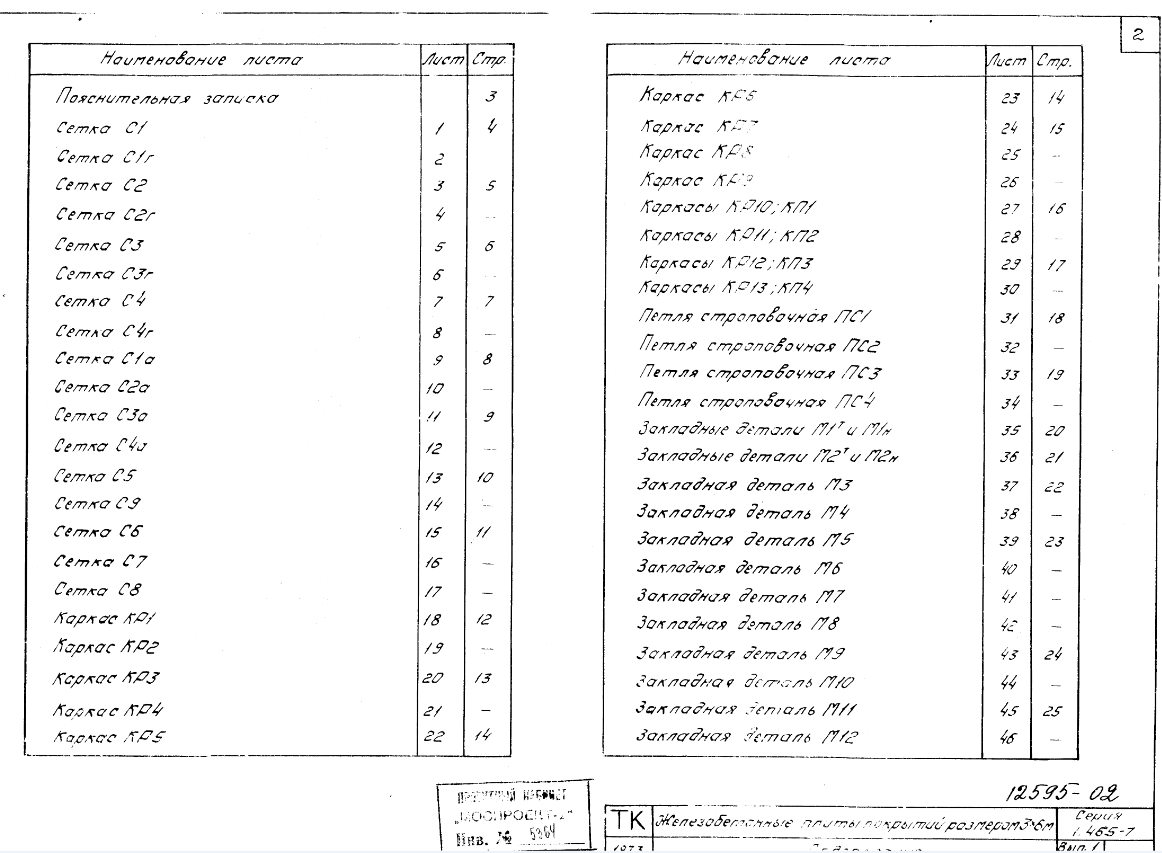 2
Наименование листа Лист Стр.
Пояснительная записка 3
Сетка С1 1 4
Сетка С1г 2
Сетка С2 3 5
Сетка С2г 4 —
Сетка С3 5 6
Сетка С3г 6 —
Сетка С4 7 7
Сетка С4г 8 —
Сетка С1а 9 8
Сетка С2а 10 —
Сетка С3а 11 9
Сетка С4а 12 —
Сетка С5 13 10
Сетка С9 14 —
Сетка С6 15 11
Сетка С7 16 —
Сетка С8 17 —
Каркас КР1 18 12
Каркас КР2 19 —
Каркас КР3 20 13
Каркас КР4 21 —
Каркас КР5 22 14
Наименование листа Лист Стр.
Каркас 23 14
Каркас КР7 24 15
Каркас КР8 25 —
Каркас КР9 26 —
Каркасы КР10; КП1 27 16
Каркасы КР11; КП2 28 —
Каркасы КР12; КП3 29 17
Каркасы КР13; КП4 30 —
Петля строповочная ПС1 31 18
Петля строповочная ПС2 32 —
Петля строповочная ПС3 33 19
Петля строповочная ПС4 34 —
Закладные детали М1т и М1н 35 20
Закладные детали М2т и М2н 36 21
Закладная деталь М3 37 22
Закладная деталь М4 38 —
Закладная деталь М5 39 23
Закладная деталь М6 40 —
Закладная деталь М7 41 —
Закладная деталь М8 42 —
Закладная деталь М9 43 24
Закладная деталь М10 44 —
Закладная деталь М11 45 25
Закладная деталь М12 46 —
12595-02
ПРОЕКТНЫЙ КАБИНЕТ
„МОСПРОЕКТ-2"
Инв. №
ТК Железобетонные плиты покрытий размером 3×6м Серия
1.465-7
1973 Вып. 1